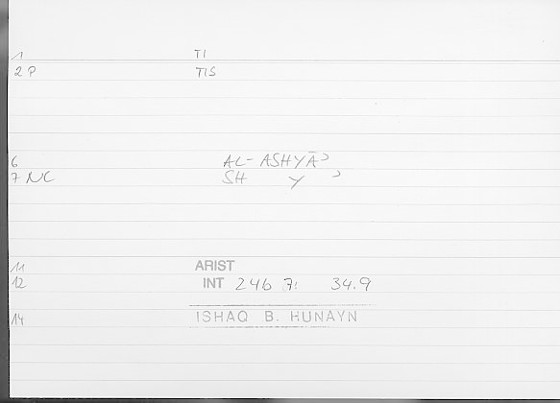 1 TI
2 P TIS
6 AL-ASHYĀʾ
7 NC SH Y ʾ
11 ARIST
12 INT 246 7: 34.9
14 ISHAQ B. HUNAYN